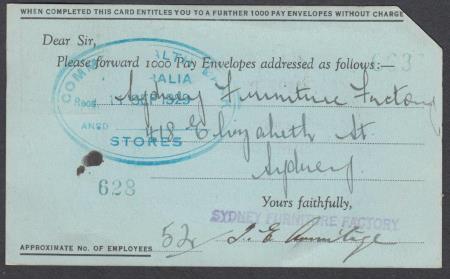 WHEN COMPLETED THIS CARD ENTITLES YOU TO A FURTHER 1000 PAY ENVELOPES WITHOUT CHARGE
Dear Sir,
Please forward 1000 Pay Envelopes addressed as follows:—
Sydney Furniture Factory
418 Elizabeth St.
Sydney
STORES
628
Yours faithfully,
SYDNEY FURNITURE FACTORY
APPROXIMATE NO. OF EMPLOYEES 52
J. E. Armitage